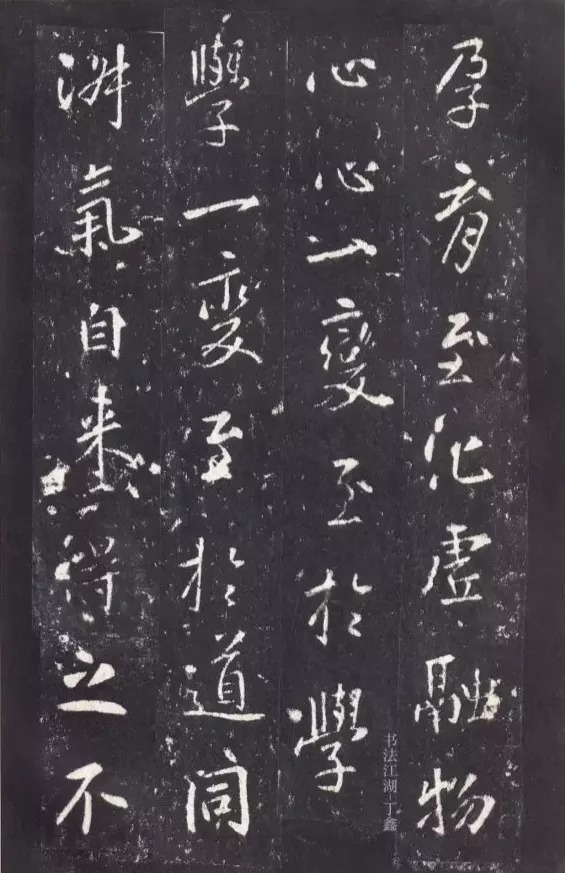 孕育至化虛融物
心心一變至於學
學一變至於道同
氣自来得之不
书法江湖丁鑫